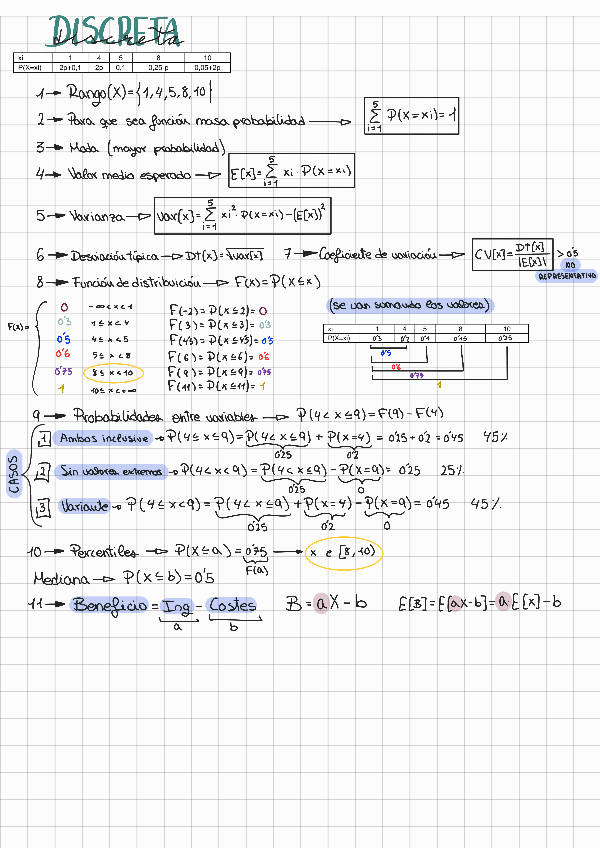 DISCRETA
Discreta
xi 1 4 5 8 10
P(X=xi) 2p+0,1 2p 0,1 0,25-p 0,05+2p
1 → Rango(X)={1,4,5,8,10}
2 → Para que sea función masa probabilidad → 5 Σ i=1 P(X=xi)=1
3 → Moda (mayor probabilidad)
4 → Valor medio esperado → E[x]= 5 Σ i=1 xi · P(X=xi)
5 → Varianza → Var[x]= 5 Σ i=1 xi²· P(X=xi)-(E[x])²
6 → Desviación típica → DT[x]=√Var[x] 7 → Coeficiente de variación → CV[x]= DT[x] / |E[x]| > 0'5 NO REPRESENTATIVO
8 → Función de distribución → F(x)=P(X≤x)
(se van sumando los valores)
F(x)=
0 -∞<x<1 F(-2)=P(X≤2)=0
0'3 1≤x<4 F(3)=P(X≤3)=0'3
0'5 4≤x<5 F(4'5)=P(X≤4'5)=0'5
0'6 5≤x<8 F(6)=P(X≤6)=0'6
0'75 8≤x<10 F(9)=P(X≤9)=0'75
1 10≤x<=∞ F(11)=P(X≤11)=1
xi 1 4 5 8 10
P(X=xi) 0'3 0'2 0'1 0'15 0'25
0'5
0'6
0'75
1
9 → Probabilidades entre variables → P(4<x≤9)=F(9)-F(4)
CASOS
1 Ambos inclusive → P(4≤x≤9)=P(4<x≤9)+P(x=4) = 0'25+0'2=0'45 45%
0'25 0'2
2 Sin valores extremos → P(4<x<9)=P(4<x≤9)-P(x=9)= 0'25 25%
0'25 0
3 Variante → P(4≤x<9)=P(4<x≤9)+P(x=4)-P(x=9)=0'45 45%
0'25 0'2 0
10 → Percentiles → P(X≤a)=0'75 → x e [8,10)
F(a)
Mediana → P(X≤b)=0'5
11 → Beneficio = Ing - Costes B = aX-b E[B]=E[aX-b]=aE[x]-b
a b